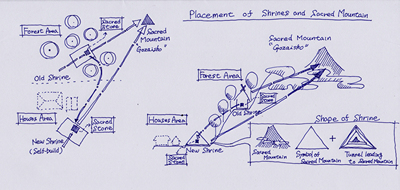 Placement of Shrines and Sacred Mountain
Forest Area
Sacred
Stone
Sacred
Mountain
Old Shrine
Houses Area
Sacred
Stone
New Shrine
(Self-build)
Sacred Mountain
Forest Area
Sacred
Stone
Old Shrine
Houses Area
New Shrine
Sacred
Stone
Shape of Shrine
+
Sacred
Mountain
Symbol of
Sacred Mountain
Tunnel leading
to Sacred Mountain